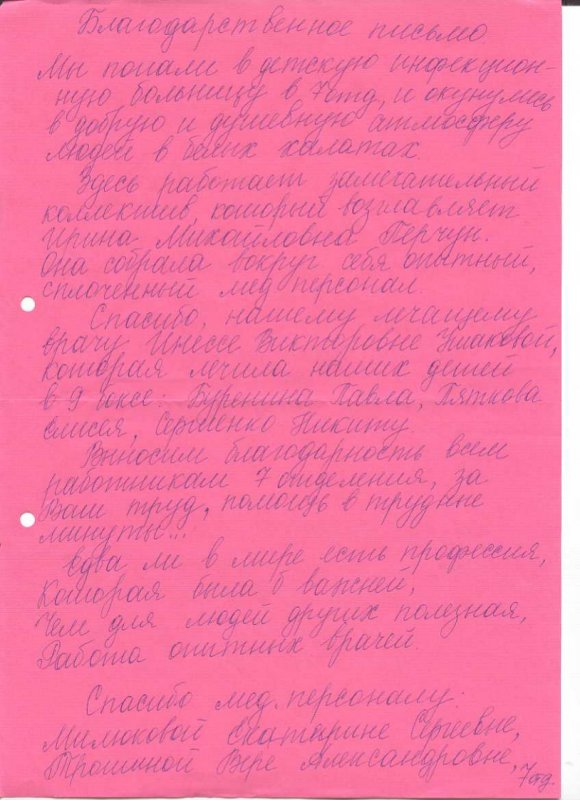 Благодарственное письмо.
Мы попали в детскую инфекцион-
ную больницу в 7отд, и окунулись
в добрую и душевную атмосферу
людей в белых халатах.
Здесь работает замечательный
коллектив, который возглавляет
Ирина Михайловна Перчун.
Она собрала вокруг себя опытный,
сплоченный мед персонал.
Спасибо, нашему лечащему
врачу Инессе Викторовне Ушаковой,
которая лечила наших детей
в 9 боксе: Буренина Павла, Пяткова
Елисея, Сергиенко Никиту.
Выносим благодарность всем
работникам 7 отделения, за
Ваш труд, помощь в трудные
минуты...
Едва ли в мире есть профессия,
Которая была б важней,
Чем для людей других полезная,
Работа опытных врачей.
Спасибо мед. персоналу:
Милюковой Екатерине Сергеевне,
Трошиной Вере Александровне, 7отд.